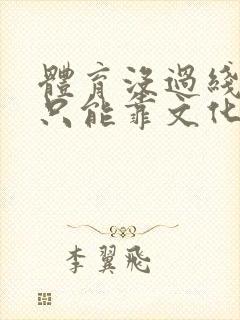 體育沒過綫
只能靠文化
李翼飛